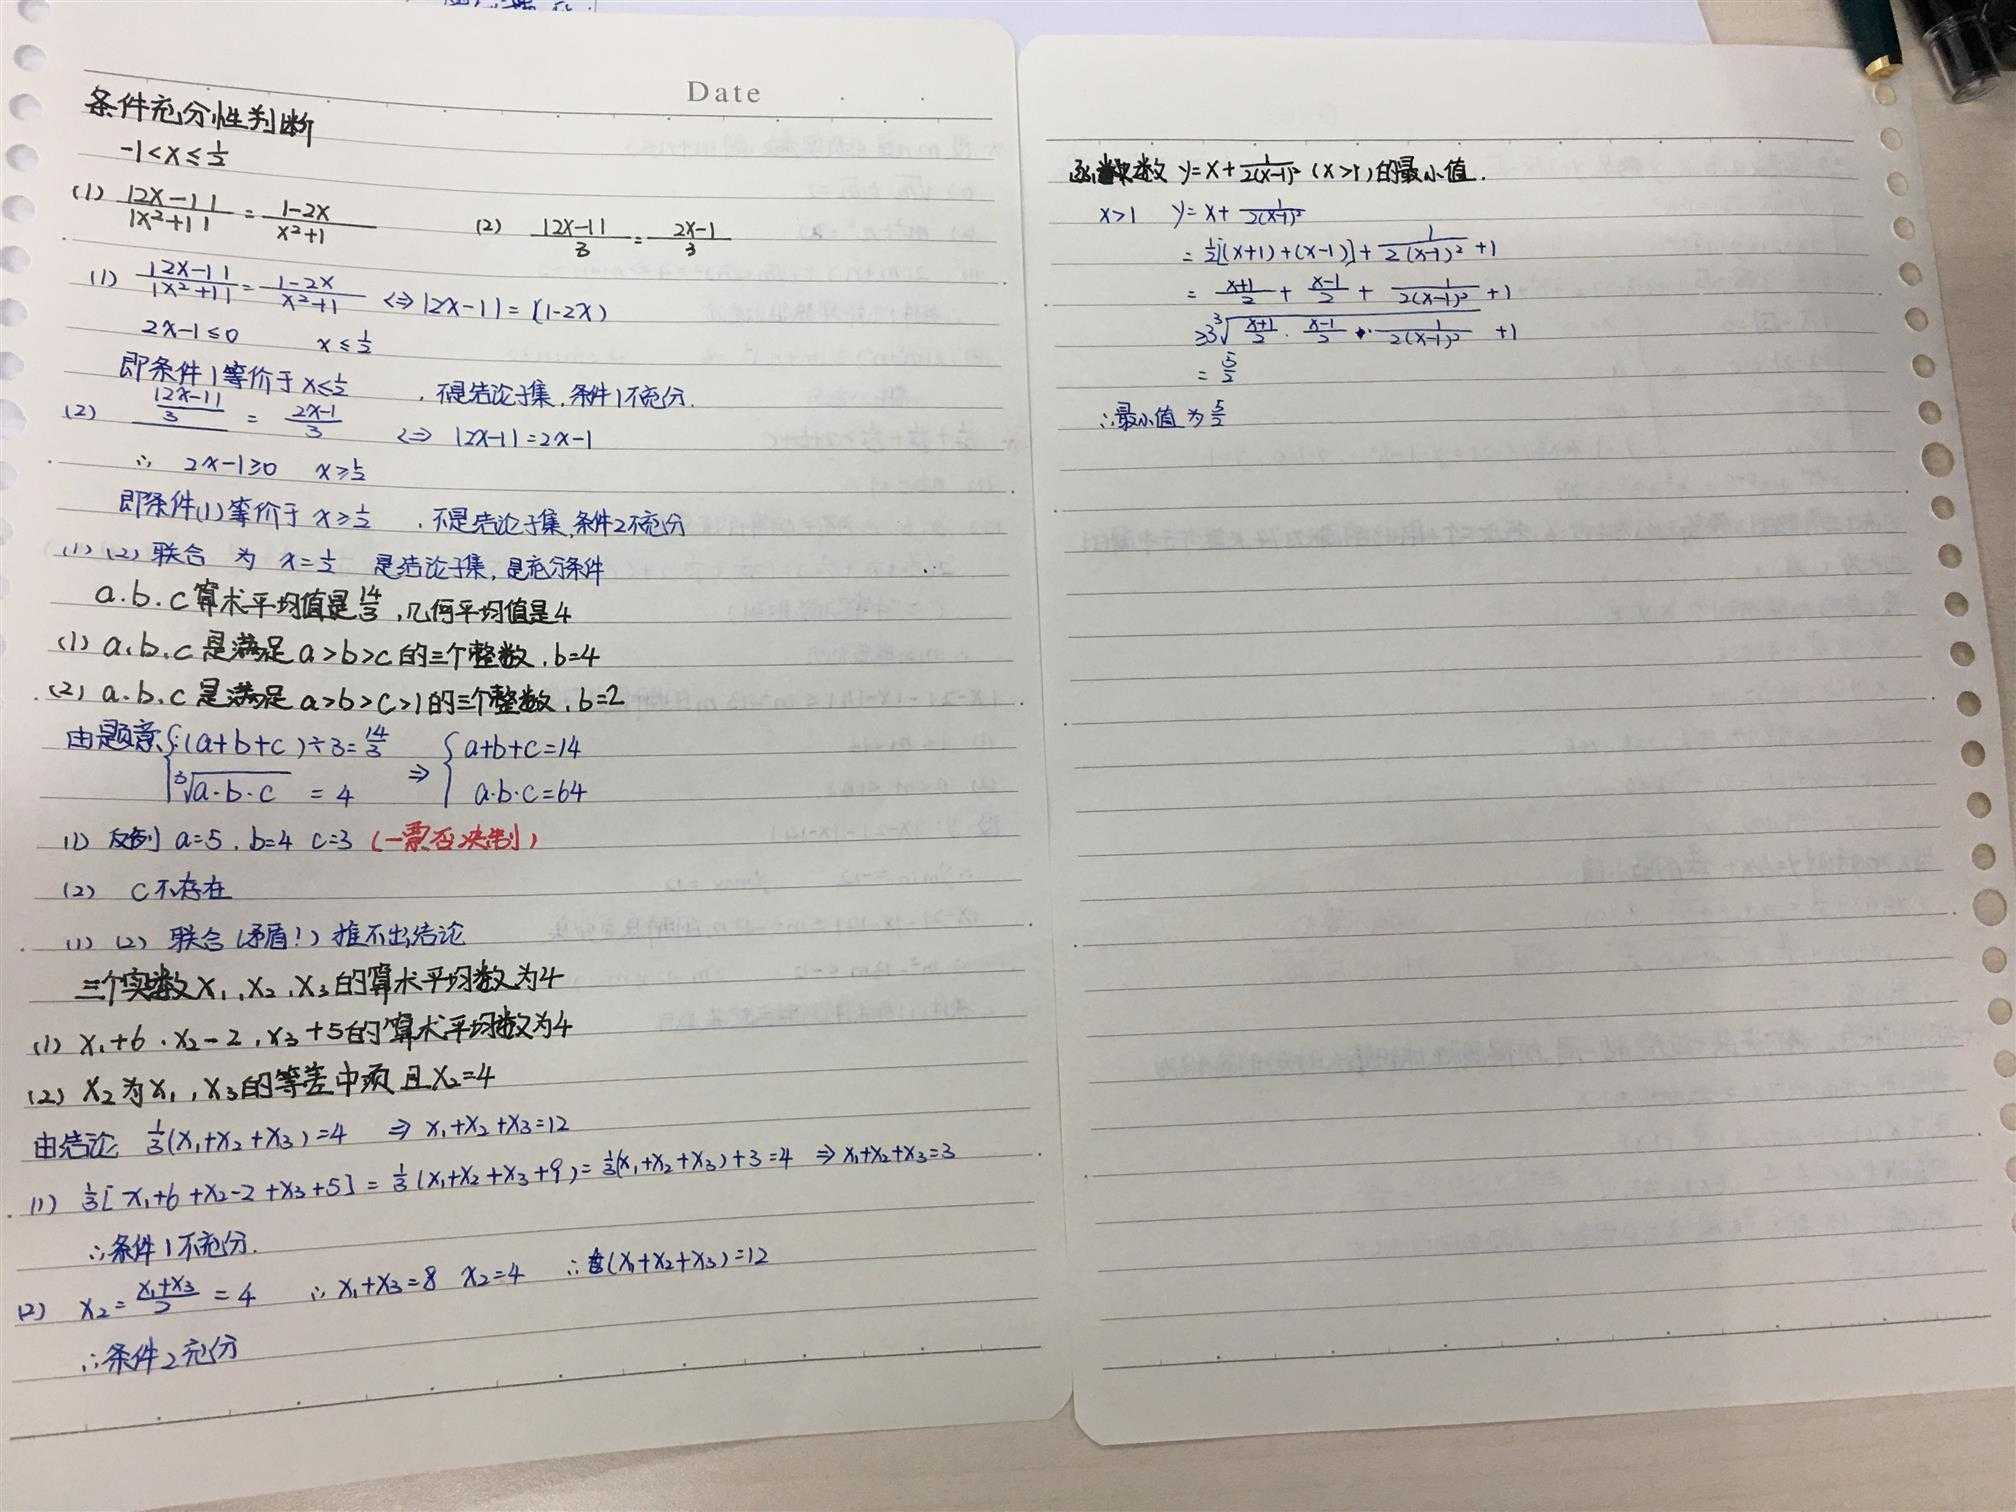 Date
条件充分性判断
-1<x≤1/2
(1) |2x-1|/|x²+1| = 1-2x/x²+1 (2) |2x-1|/3 = 2x-1/3
(1) |2x-1|/|x²+1| = 1-2x/x²+1 <=> |2x-1|=(1-2x)
2x-1≤0 x≤1/2
即条件1等价于x≤1/2 ,不是结论子集,条件1不充分.
(2) |2x-1|/3 = 2x-1/3 <=> |2x-1|=2x-1
∴ 2x-1≥0 x≥1/2
即条件(1)等价于 x≥1/2 ,不是结论子集,条件2不充分
(1)(2)联合 为 x=1/2 是结论子集,是充分条件
a.b.c算术平均值是14/3,几何平均值是4
(1) a、b、c 是满足 a>b>c 的三个整数,b=4
(2) a.b.c 是满足 a>b>c>1的三个整数,b=2
由题意{(a+b+c)÷3=14/3 ⇒ {a+b+c=14
∛a·b·c = 4 a·b·c=64
(1) 反例 a=5,b=4 c=3 (一票否决制)
(2) c不存在
(1) (2) 联合(矛盾!)推不出结论
三个实数x₁,x₂,x₃的算术平均数为4
(1) x₁+6,x₂-2,x₃+5的算术平均数为4
(2) x₂为x₁,x₃的等差中项且x₂=4
由结论 1/3(x₁+x₂+x₃)=4 ⇒ x₁+x₂+x₃=12
(1) 1/3[x₁+6+x₂-2+x₃+5] = 1/3(x₁+x₂+x₃+9)=1/3(x₁+x₂+x₃)+3=4 ⇒x₁+x₂+x₃=3
∴条件1不充分.
(2) x₂=x₁+x₃/2=4 ∴x₁+x₃=8 x₂=4 ∴(x₁+x₂+x₃)=12
∴条件2充分
函数 y=x+1/2(x-1)² (x>1)的最小值.
x>1 y=x+1/2(x-1)²
=1/2[(x+1)+(x-1)]+1/2(x-1)²+1
=x+1/2+x-1/2+1/2(x-1)²+1
≥3∛x+1/2·x-1/2·1/2(x-1)² +1
=5/2
∴最小值为5/2